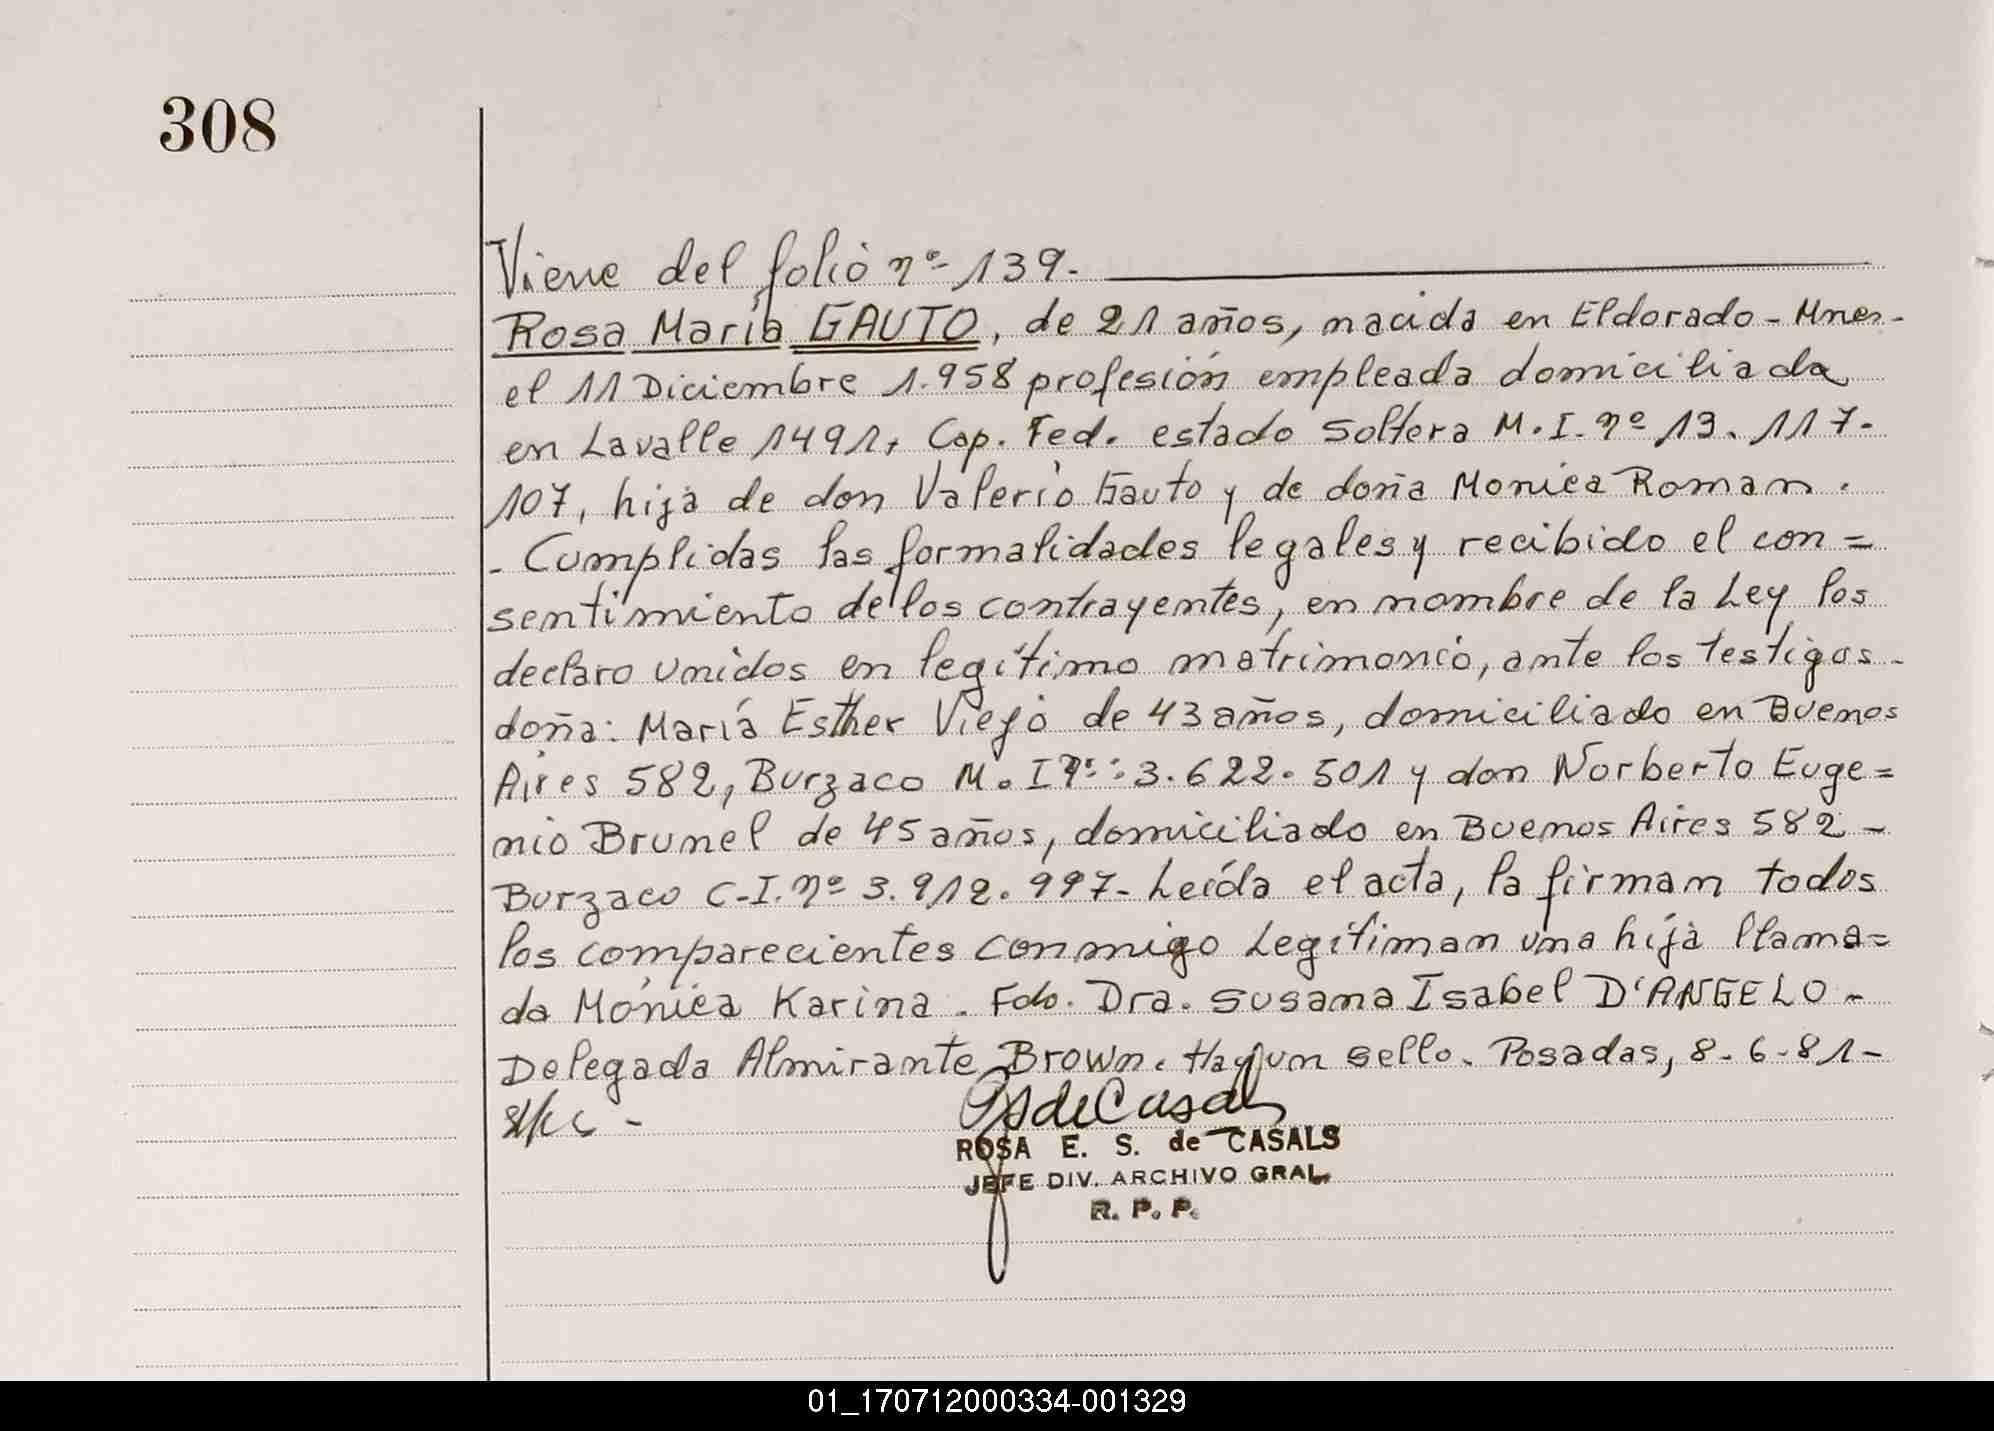 308
Viene del folio nº 139.
Rosa María GAUTO, de 21 años, nacida en Eldorado - Mnes-
el 11 Diciembre 1.958 profesión empleada domiciliada
en Lavalle 1491, Cap. Fed. estado soltera M.I. nº 13.117.
107, hija de don Valerio Gauto y de doña Monica Roman.
- Cumplidas las formalidades legales y recibido el con=
sentimiento de los contrayentes, en nombre de la Ley los
declaro unidos en legítimo matrimonio, ante los testigos-
doña: María Esther Viejo de 43 años, domiciliado en Buenos
Aires 582, Burzaco M.I nº: 3.622.501 y don Norberto Euge=
nio Brunel de 45 años, domiciliado en Buenos Aires 582-
Burzaco C.I. nº 3.912.997- Leída el acta, la firman todos
los comparecientes conmigo Legitiman una hija llama=
da Mónica Karina. Fdo. Dra. Susana Isabel D'ANGELO-
Delegada Almirante Brown. Hay un sello. Posadas, 8-6-81-
ROSA E. S. de CASALS
JEFE DIV. ARCHIVO GRAL.
R. P. P.
01_170712000334-001329